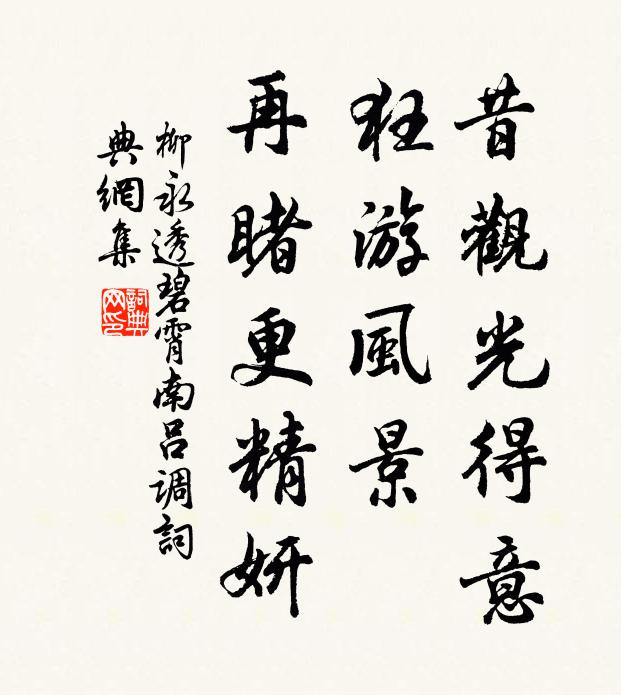 昔觀光得意
狂游風景
再睹更精妍
柳永透碧霄南吕调詞
典網集
詞典
网印